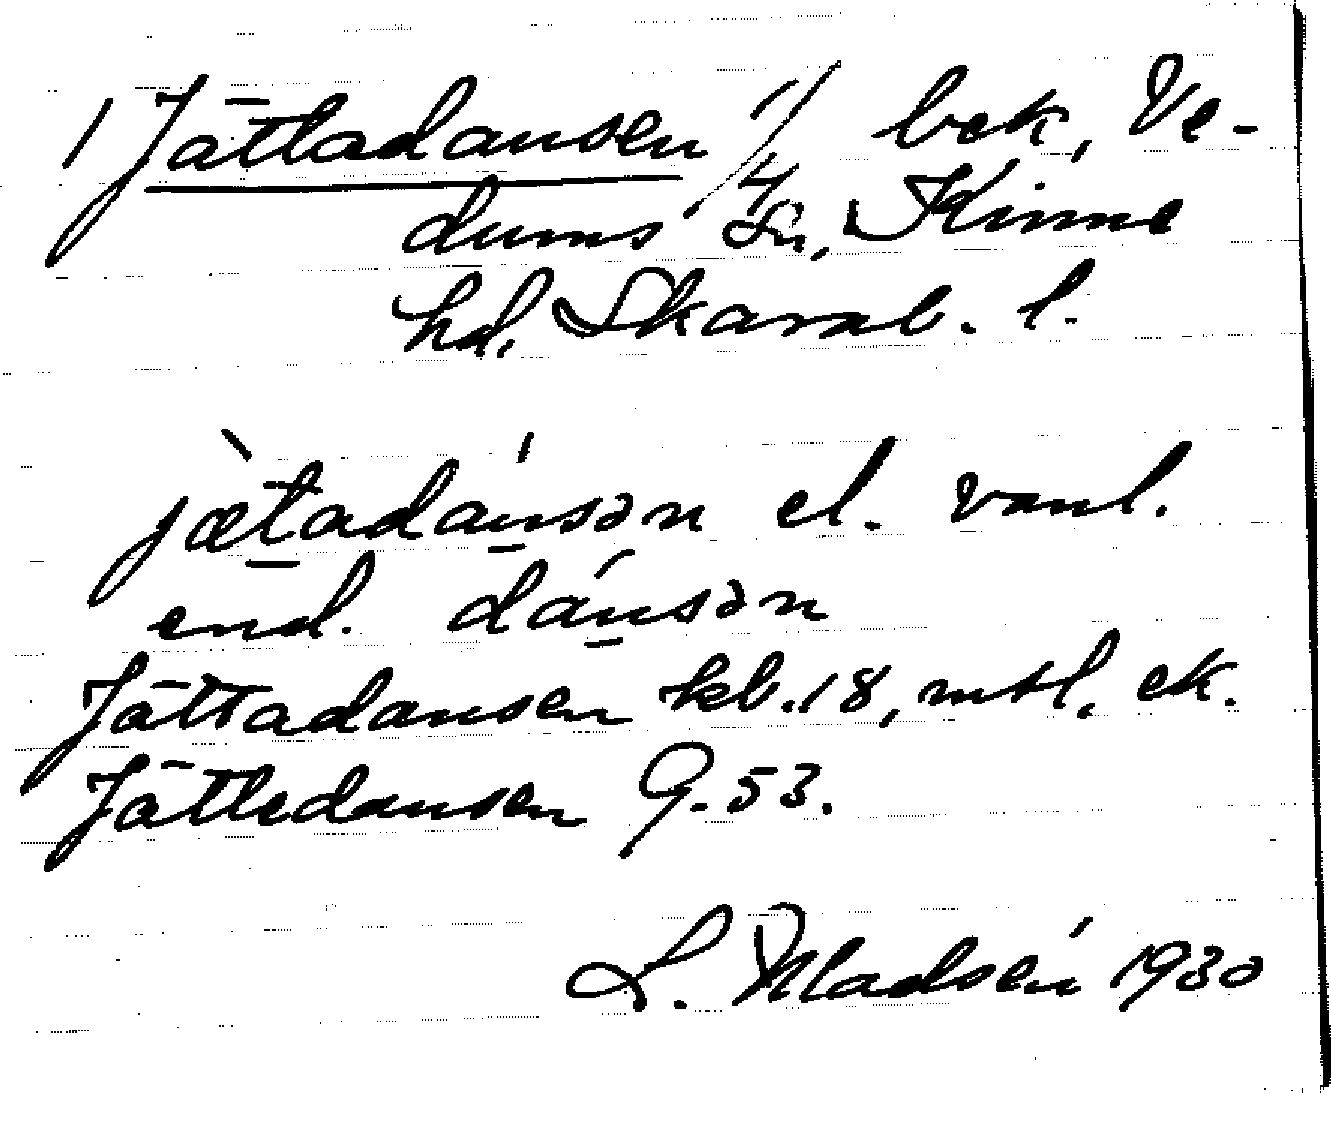 1 Jättadansen 1/4 bek, Ve-
dums sn, Kinne
hd, Skarab. l.
jætadánsən el. vanl.
end. dánsən
Jättadansen kb. 18, mtl, ek.
Jättedansen G. 53.
L. Madsén 1930